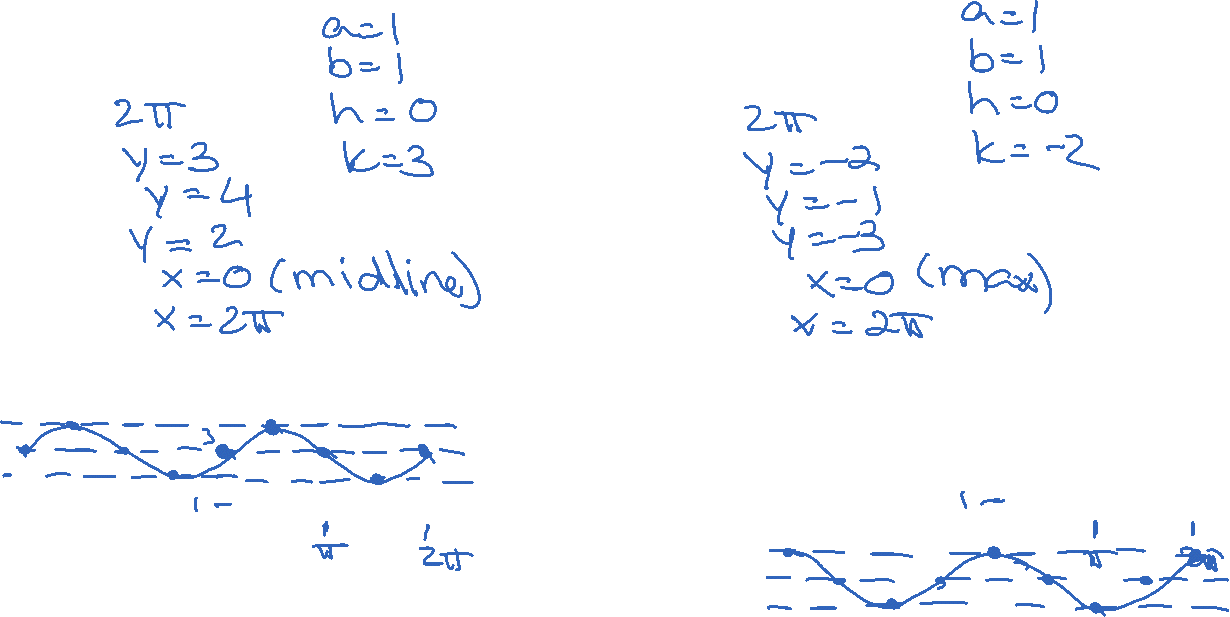 a=1
b=1
h=0
k=3
2π
y=3
y=4
y=2
x=0 (midline)
x=2π
3
1
π
2π
a=1
b=1
h=0
k=-2
2π
y=-2
y=-1
y=-3
x=0 (max)
x=2π
1
π
2π